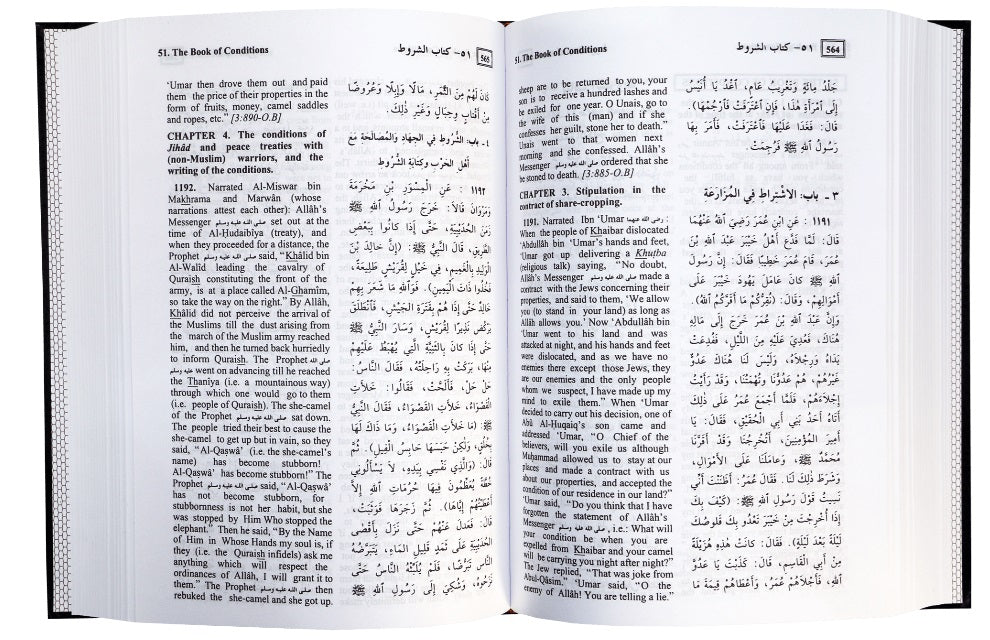 51. The Book of Conditions
٥١- كتاب الشروط
564
sheep are to be returned to you, your
son is to receive a hundred lashes and
be exiled for one year. O Unais, go to
the wife of this (man) and if she
confesses her guilt, stone her to death."
Unais went to that women next
morning and she confessed. Allâh's
Messenger صلى الله عليه وسلم ordered that she
be stoned to death. [3:885-O.B]
CHAPTER 3. Stipulation in the
contract of share-cropping.
1191. Narrated Ibn 'Umar رضي الله عنهما :
When the people of Khaibar dislocated
'Abdullâh bin 'Umar's hands and feet,
'Umar got up delivering a Khutba
(religious talk) saying, "No doubt,
Allâh's Messenger صلى الله عليه وسلم made a
contract with the Jews concerning their
properties, and said to them, 'We allow
you (to stand in your land) as long as
Allâh allows you.' Now 'Abdullâh bin
'Umar went to his land and was
attacked at night, and his hands and feet
were dislocated, and as we have no
enemies there except those Jews, they
are our enemies and the only people
whom we suspect, I have made up my
mind to exile them." When 'Umar
decided to carry out his decision, one of
Abû Al-Huqaiq's son came and
addressed 'Umar, "O Chief of the
believers, will you exile us although
Muhammad allowed us to stay at our
places and made a contract with us
about our properties, and accepted the
condition of our residence in our land?"
'Umar said, "Do you think that I have
forgotten the statement of Allâh's
Messenger صلى الله عليه وسلم, i.e.: What will
your condition be when you are
expelled from Khaibar and your camel
will be carrying you night after night?"
The Jew replied, "That was joke from
Abul-Qâsim," 'Umar said, "O the
enemy of Allâh! You are telling a lie."
جَلْدُ مِائَةٍ وَتَغْرِيبُ عَامٍ، اغْدُ يَا أُنَيْسُ
إِلَى امْرَأَةِ هٰذَا، فَإِنِ اعْتَرَفَتْ فَارْجُمْهَا).
قَالَ: فَغَدَا عَلَيْهَا فَاعْتَرَفَتْ، فَأَمَرَ بِهَا
رَسُولُ اللهِ ﷺ فَرُجِمَتْ.
٣ ـ باب: الاشْتِراط في المُزَارَعَة
١١٩١ : عَنِ ابْنِ عُمَرَ رَضِيَ اللهُ عَنْهُمَا
قَالَ: لَمَّا فَدَعَ أَهْلُ خَيْبَرَ عَبْدَ اللهِ بْنَ
عُمَرَ، قَامَ عُمَرُ خَطِيبًا فَقَالَ: إِنَّ رَسُولَ
اللهِ ﷺ كَانَ عَامَلَ يَهُودَ خَيْبَرَ عَلَى
أَمْوَالِهِمْ، وَقَالَ: (نُقِرُّكُمْ مَا أَقَرَّكُمُ اللهُ).
وَإِنَّ عَبْدَ اللهِ بْنَ عُمَرَ خَرَجَ إِلَى مَالِهِ
هُنَاكَ، فَعُدِيَ عَلَيْهِ مِنَ اللَّيْلِ، فَفُدِعَتْ
يَدَاهُ وَرِجْلَاهُ، وَلَيْسَ لَنَا هُنَاكَ عَدُوٌّ
غَيْرُهُمْ، هُمْ عَدُوُّنَا وَتُهْمَتُنَا، وَقَدْ رَأَيْتُ
إِجْلَاءَهُمْ، فَلَمَّا أَجْمَعَ عُمَرُ عَلَى ذٰلِكَ
أَتَاهُ أَحَدُ بَنِي أَبِي الْحُقَيْقِ، فَقَالَ: يَا
أَمِيرَ الْمُؤْمِنِينَ، أَتُخْرِجُنَا وَقَدْ أَقَرَّنَا
مُحَمَّدٌ ﷺ، وَعَامَلَنَا عَلَى الْأَمْوَالِ،
وَشَرَطَ ذٰلِكَ لَنَا. فَقَالَ عُمَرُ: أَظَنَنْتَ أَنِّي
نَسِيتُ قَوْلَ رَسُولِ اللهِ ﷺ: (كَيْفَ بِكَ
إِذَا أُخْرِجْتَ مِنْ خَيْبَرَ تَعْدُو بِكَ قَلُوصُكَ
لَيْلَةً بَعْدَ لَيْلَةٍ). فَقَالَ: كَانَتْ هٰذِهِ هُزَيْلَةً
مِنْ أَبِي الْقَاسِمِ، قَالَ: كَذَبْتَ يَا عَدُوَّ
اللهِ، فَأَجْلَاهُمْ عُمَرُ، وَأَعْطَاهُمْ قِيمَةَ مَا
51. The Book of Conditions
٥١- كتاب الشروط
565
'Umar then drove them out and paid
them the price of their properties in the
form of fruits, money, camel saddles
and ropes, etc." [3:890-O.B]
CHAPTER 4. The conditions of
Jihâd and peace treaties with
(non-Muslim) warriors, and the
writing of the conditions.
1192. Narrated Al-Miswar bin
Makhrama and Marwân (whose
narrations attest each other): Allâh's
Messenger صلى الله عليه وسلم set out at the
time of Al-Hudaibîya (treaty), and
when they proceeded for a distance, the
Prophet صلى الله عليه وسلم said, "Khâlid bin
Al-Walîd leading the cavalry of
Quraish constituting the front of the
army, is at a place called Al-Ghamîm,
so take the way on the right." By Allâh,
Khâlid did not perceive the arrival of
the Muslims till the dust arising from
the march of the Muslim army reached
him, and then he turned back hurriedly
to inform Quraish. The Prophet صلى الله
عليه وسلم went on advancing till he reached
the Thaniya (i.e. a mountainous way)
through which one would go to them
(i.e. people of Quraish). The she-camel
of the Prophet صلى الله عليه وسلم sat down.
The people tried their best to cause the
she-camel to get up but in vain, so they
said, "Al-Qaswâ' (i.e. the she-camel's
name) has become stubborn!
Al-Qaswâ' has become stubborn!" The
Prophet صلى الله عليه وسلم said, "Al-Qaswâ'
has not become stubborn, for
stubbornness is not her habit, but she
was stopped by Him Who stopped the
elephant." Then he said, "By the Name
of Him in Whose Hands my soul is, if
they (i.e. the Quraish infidels) ask me
anything which will respect the
ordinances of Allâh, I will grant it to
them." The Prophet صلى الله عليه وسلم then
rebuked the she-camel and she got up.
كَانَ لَهُمْ مِنَ الثَّمَرِ، مَالًا وَإِبِلًا وَعُرُوضًا
مِنْ أَقْتَابٍ وَحِبَالٍ وَغَيْرِ ذٰلِكَ.
٤ ـ باب: الشُّرُوط في الجهاد وَالمُصَالَحَة مَعَ
أهْل الحَرْب وَكِتَابَة الشُّرُوط
١١٩٢ : عَنِ الْمِسْوَرِ بْنِ مَخْرَمَةَ
وَمَرْوَانَ قَالَا: خَرَجَ رَسُولُ اللهِ ﷺ
زَمَنَ الْحُدَيْبِيَةِ، حَتَّى إِذَا كَانُوا بِبَعْضِ
الطَّرِيقِ، قَالَ النَّبِيُّ ﷺ: (إِنَّ خَالِدَ بْنَ
الْوَلِيدِ بِالْغَمِيمِ، فِي خَيْلٍ لِقُرَيْشٍ طَلِيعَةً،
فَخُذُوا ذَاتَ الْيَمِينِ). فَوَاللهِ مَا شَعَرَ بِهِمْ
خَالِدٌ حَتَّى إِذَا هُمْ بِقَتَرَةِ الْجَيْشِ، فَانْطَلَقَ
يَرْكُضُ نَذِيرًا لِقُرَيْشٍ، وَسَارَ النَّبِيُّ ﷺ
حَتَّى إِذَا كَانَ بِالثَّنِيَّةِ الَّتِي يُهْبَطُ عَلَيْهِمْ
مِنْهَا، بَرَكَتْ بِهِ رَاحِلَتُهُ، فَقَالَ النَّاسُ:
حَلْ حَلْ، فَأَلَحَّتْ، فَقَالُوا: خَلَأَتِ
الْقَصْوَاءُ، خَلَأَتِ الْقَصْوَاءُ، فَقَالَ النَّبِيُّ
ﷺ: (مَا خَلَأَتِ الْقَصْوَاءُ، وَمَا ذَاكَ لَهَا
بِخُلُقٍ، وَلٰكِنْ حَبَسَهَا حَابِسُ الْفِيلِ). ثُمَّ
قَالَ: (وَالَّذِي نَفْسِي بِيَدِهِ، لَا يَسْأَلُونِي
خُطَّةً يُعَظِّمُونَ فِيهَا حُرُمَاتِ اللهِ إِلَّا
أَعْطَيْتُهُمْ إِيَّاهَا). ثُمَّ زَجَرَهَا فَوَثَبَتْ،
قَالَ: فَعَدَلَ عَنْهُمْ حَتَّى نَزَلَ بِأَقْصَى
الْحُدَيْبِيَةِ عَلَى ثَمَدٍ قَلِيلِ الْمَاءِ، يَتَبَرَّضُهُ
النَّاسُ تَبَرُّضًا، فَلَمْ يُلَبِّثْهُ النَّاسُ حَتَّى
نَزَحُوهُ، وَشُكِيَ إِلَى رَسُولِ اللهِ ﷺ